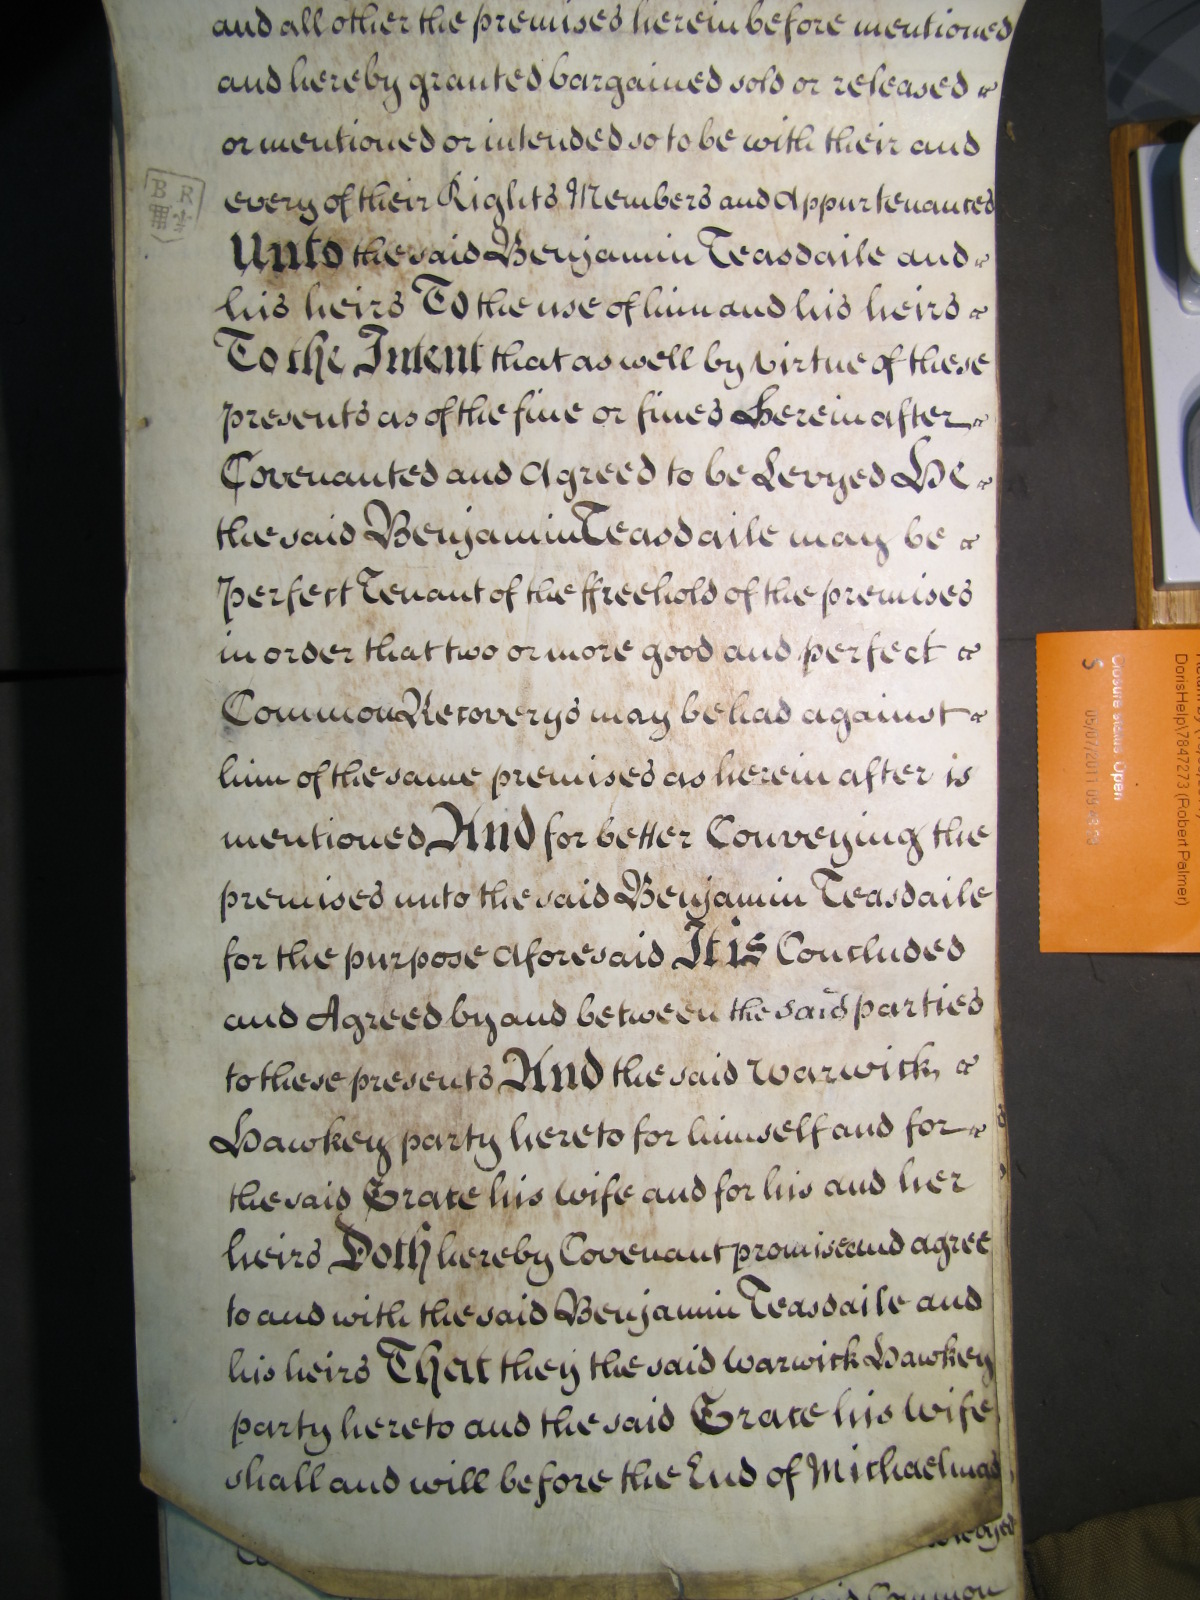 and all other the premises herein before mentioned
and hereby granted bargained sold or released
or mentioned or intended so to be with their and
every of their Rights Members and Appurtenances
B R
Unto the said Benjamin Teasdaile and
his heirs To the use of him and his heirs
To the Intent that as well by virtue of these
presents as of the fine or fines herein after
Covenanted and Agreed to be Levyed He
the said Benjamin Teasdaile may be
perfect Tenant of the ffreehold of the premises
in order that two or more good and perfect
Common Recoverys may be had against
him of the same premises as herein after is
mentioned And for better Conveying the
premises unto the said Benjamin Teasdaile
for the purpose Aforesaid It is Concluded
and Agreed by and between the said parties
to these presents And the said Warwick
Hawkey party hereto for himself and for
the said Grace his Wife and for his and her
heirs Doth hereby Covenant promise and agree
to and with the said Benjamin Teasdaile and
his heirs That they the said Warwick Hawkey
party hereto and the said Grace his Wife
shall and will before the End of Michaelmas
Common
DorisHelp\7847273 (Robert Palmer)
Closure status Open
S